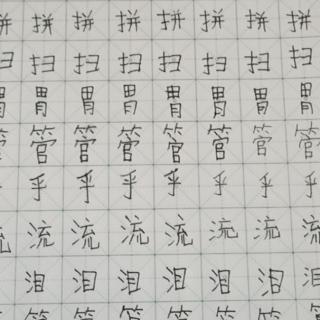 拼拼拼拼拼拼拼拼
扫扫扫扫扫扫扫扫
胃胃胃胃胃胃胃胃
管管管管管管管管
乎乎乎乎乎乎乎乎
流流流流流流流流
泪泪泪泪泪泪泪